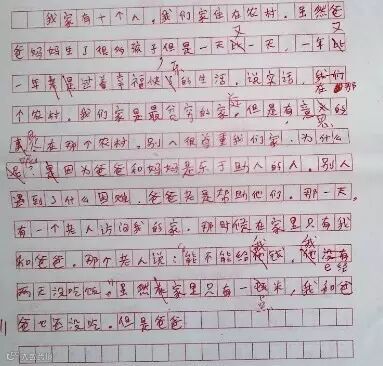 我家有十个人。我们家住在农村。虽然爸
爸妈妈生了很多孩子但是一天又一天，一年又
一年是过着幸福快乐的生活。说实话，我们在那
个农村，我们家是最穷的家庭。但是有意思的
是在那个农村，别人很尊重我们家。为什么
呢？因为爸爸和妈妈是乐于助人的人。别人
遇到了什么困难，爸爸老是帮助他们。那一天，
有一个老人访问我的家。那时候在家里只有我
和爸爸。那个老人说：“能不能给我钱，我没有
两天没吃饭。虽然家里只有一点米，我和爸
爸也还没吃。但是爸爸